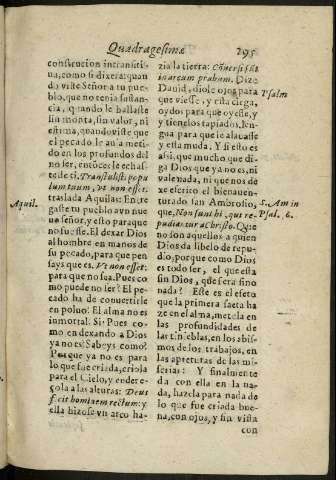 Quadragesimæ
295
construcion intransiti-
ua, como si dixera: quan
do viste Señor a tu pue-
blo, que no tenia sustan-
cia, quando la hallaste
sin monta, sin valor, ni
estima, quando viste que
el pecado le auia metido
en los profundos del
no ser, entonces le echas-
te de si. Transtulisti popu
lum tuum, vt non esset:
traslada Aquilas: Entre
gaste tu pueblo a vn nue
uo señor, y esto para que
no fuesse. El dexar Dios
al hombre en manos de
su pecado, para que pen
says que es. Vt non esset:
para que no sea. Pues co
mo puede no ser? El pe-
cado ha de conuertirle
en poluo? El alma no es
inmortal: Si. Pues co-
mo en dexando a Dios
ya no es? Sabeys como?
Porque ya no es para
lo que fue criada, criola
para el Cielo, y endere-
çola a las alturas: Deus
fecit hominem rectum: y
ella hizose vn arco ha-
Aquil.
zia la tierra: Conuersi sũt
in arcum prabum. Dize
Dauid, diole ojos para
que viesse, y esta ciega,
oydos para que oyesse, y
y tienelos tapiados, len-
gua para que le alauasse
y esta muda. Y si esto es
assi, que mucho que di-
ga Dios que ya no es, ni
vale nada, ni que nos de
xe escrito el bienauen-
turado san Ambrosio,
que, Non sunt hi, qui re-
pudiatur a Christo. Que
no son aquellos a quien
Dios da libelo de repu-
dio, porque como Dios
es todo ser, el que esta
sin Dios, que sera sino
nada? Este es el efeto
que la primera saeta ha
ze en el alma, metela en
las profundidades de
las tinieblas, en los abis-
mos de los trabajos, en
las apreturas de las mi-
serias: Y finalmente
da con ella en la na
da, hazela para nada de
lo que fue criada bue-
na, con ojos, y sin vista
con
Psalm
S. Am in
Psal. 6.